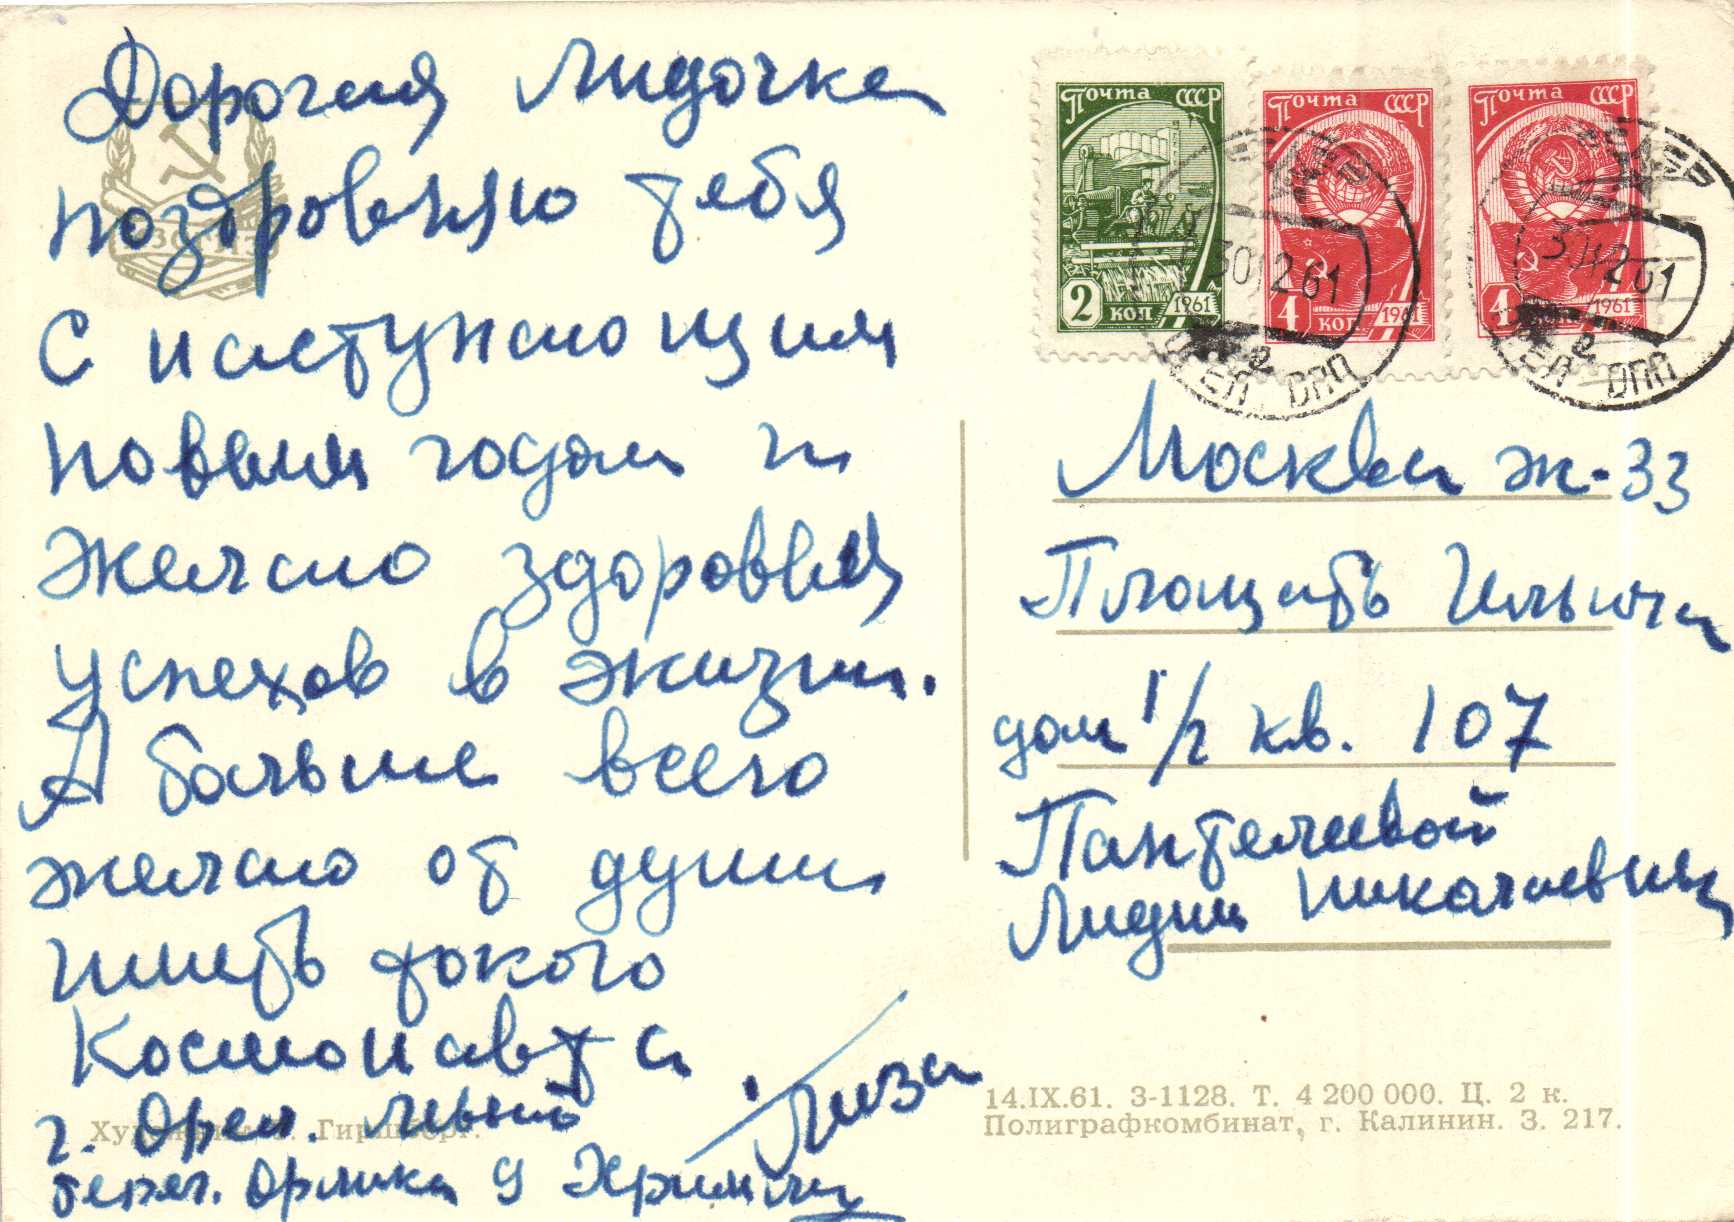 Дорогая Лидочка
поздровляю тебя
с наступающим
новым годом и
желаю здоровья
успехов в жизни.
А больше всего
желаю от души
иметь такого
Космонавта
Лиза
г. Орел. Левый
берег. Орлика 9
ИЗОГИЗ
Почта СССР
2 коп 1961
Почта СССР
4 коп 1961
Почта СССР
4 1961
30 12 61
Москва Ж-33
Площать Ильича
дом 1/2 кв. 107
Пантелеевой
Лидии Николаевны
14.IX.61. З-1128. Т. 4 200 000. Ц. 2 к.
Полиграфкомбинат, г. Калинин. З. 217.